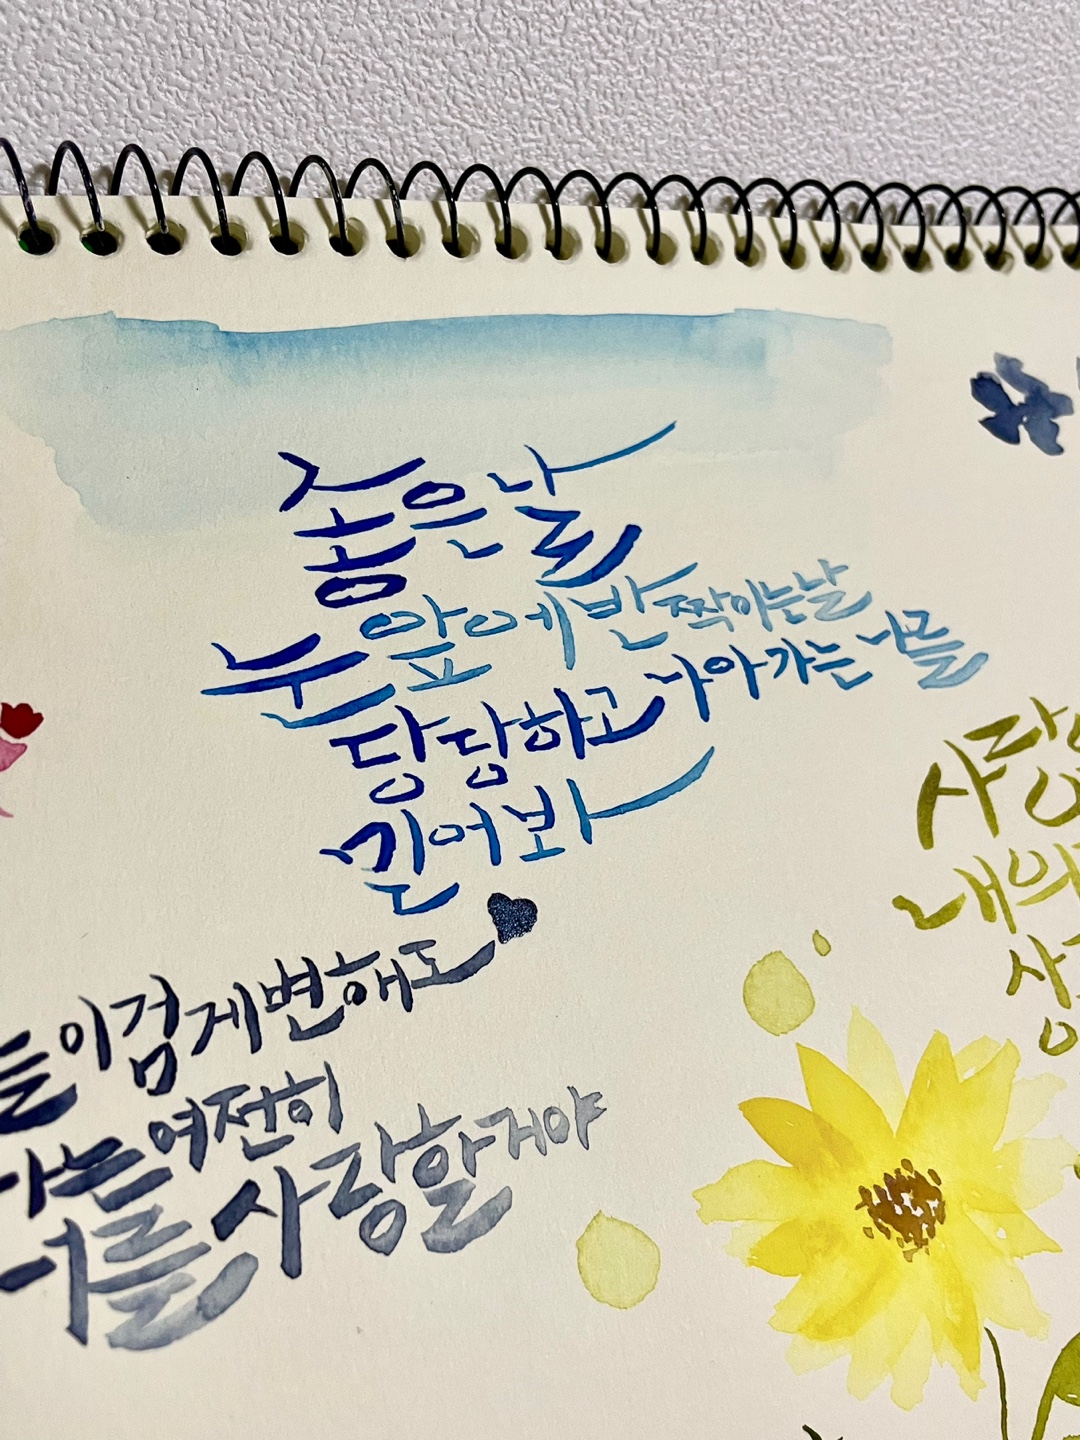 좋은 날
눈 앞에 반짝이는 날
당당하고 나아가는 나를
믿어봐
들이 검게 변해도
나는 여전히
너를 사랑할거야
사랑
내의
상